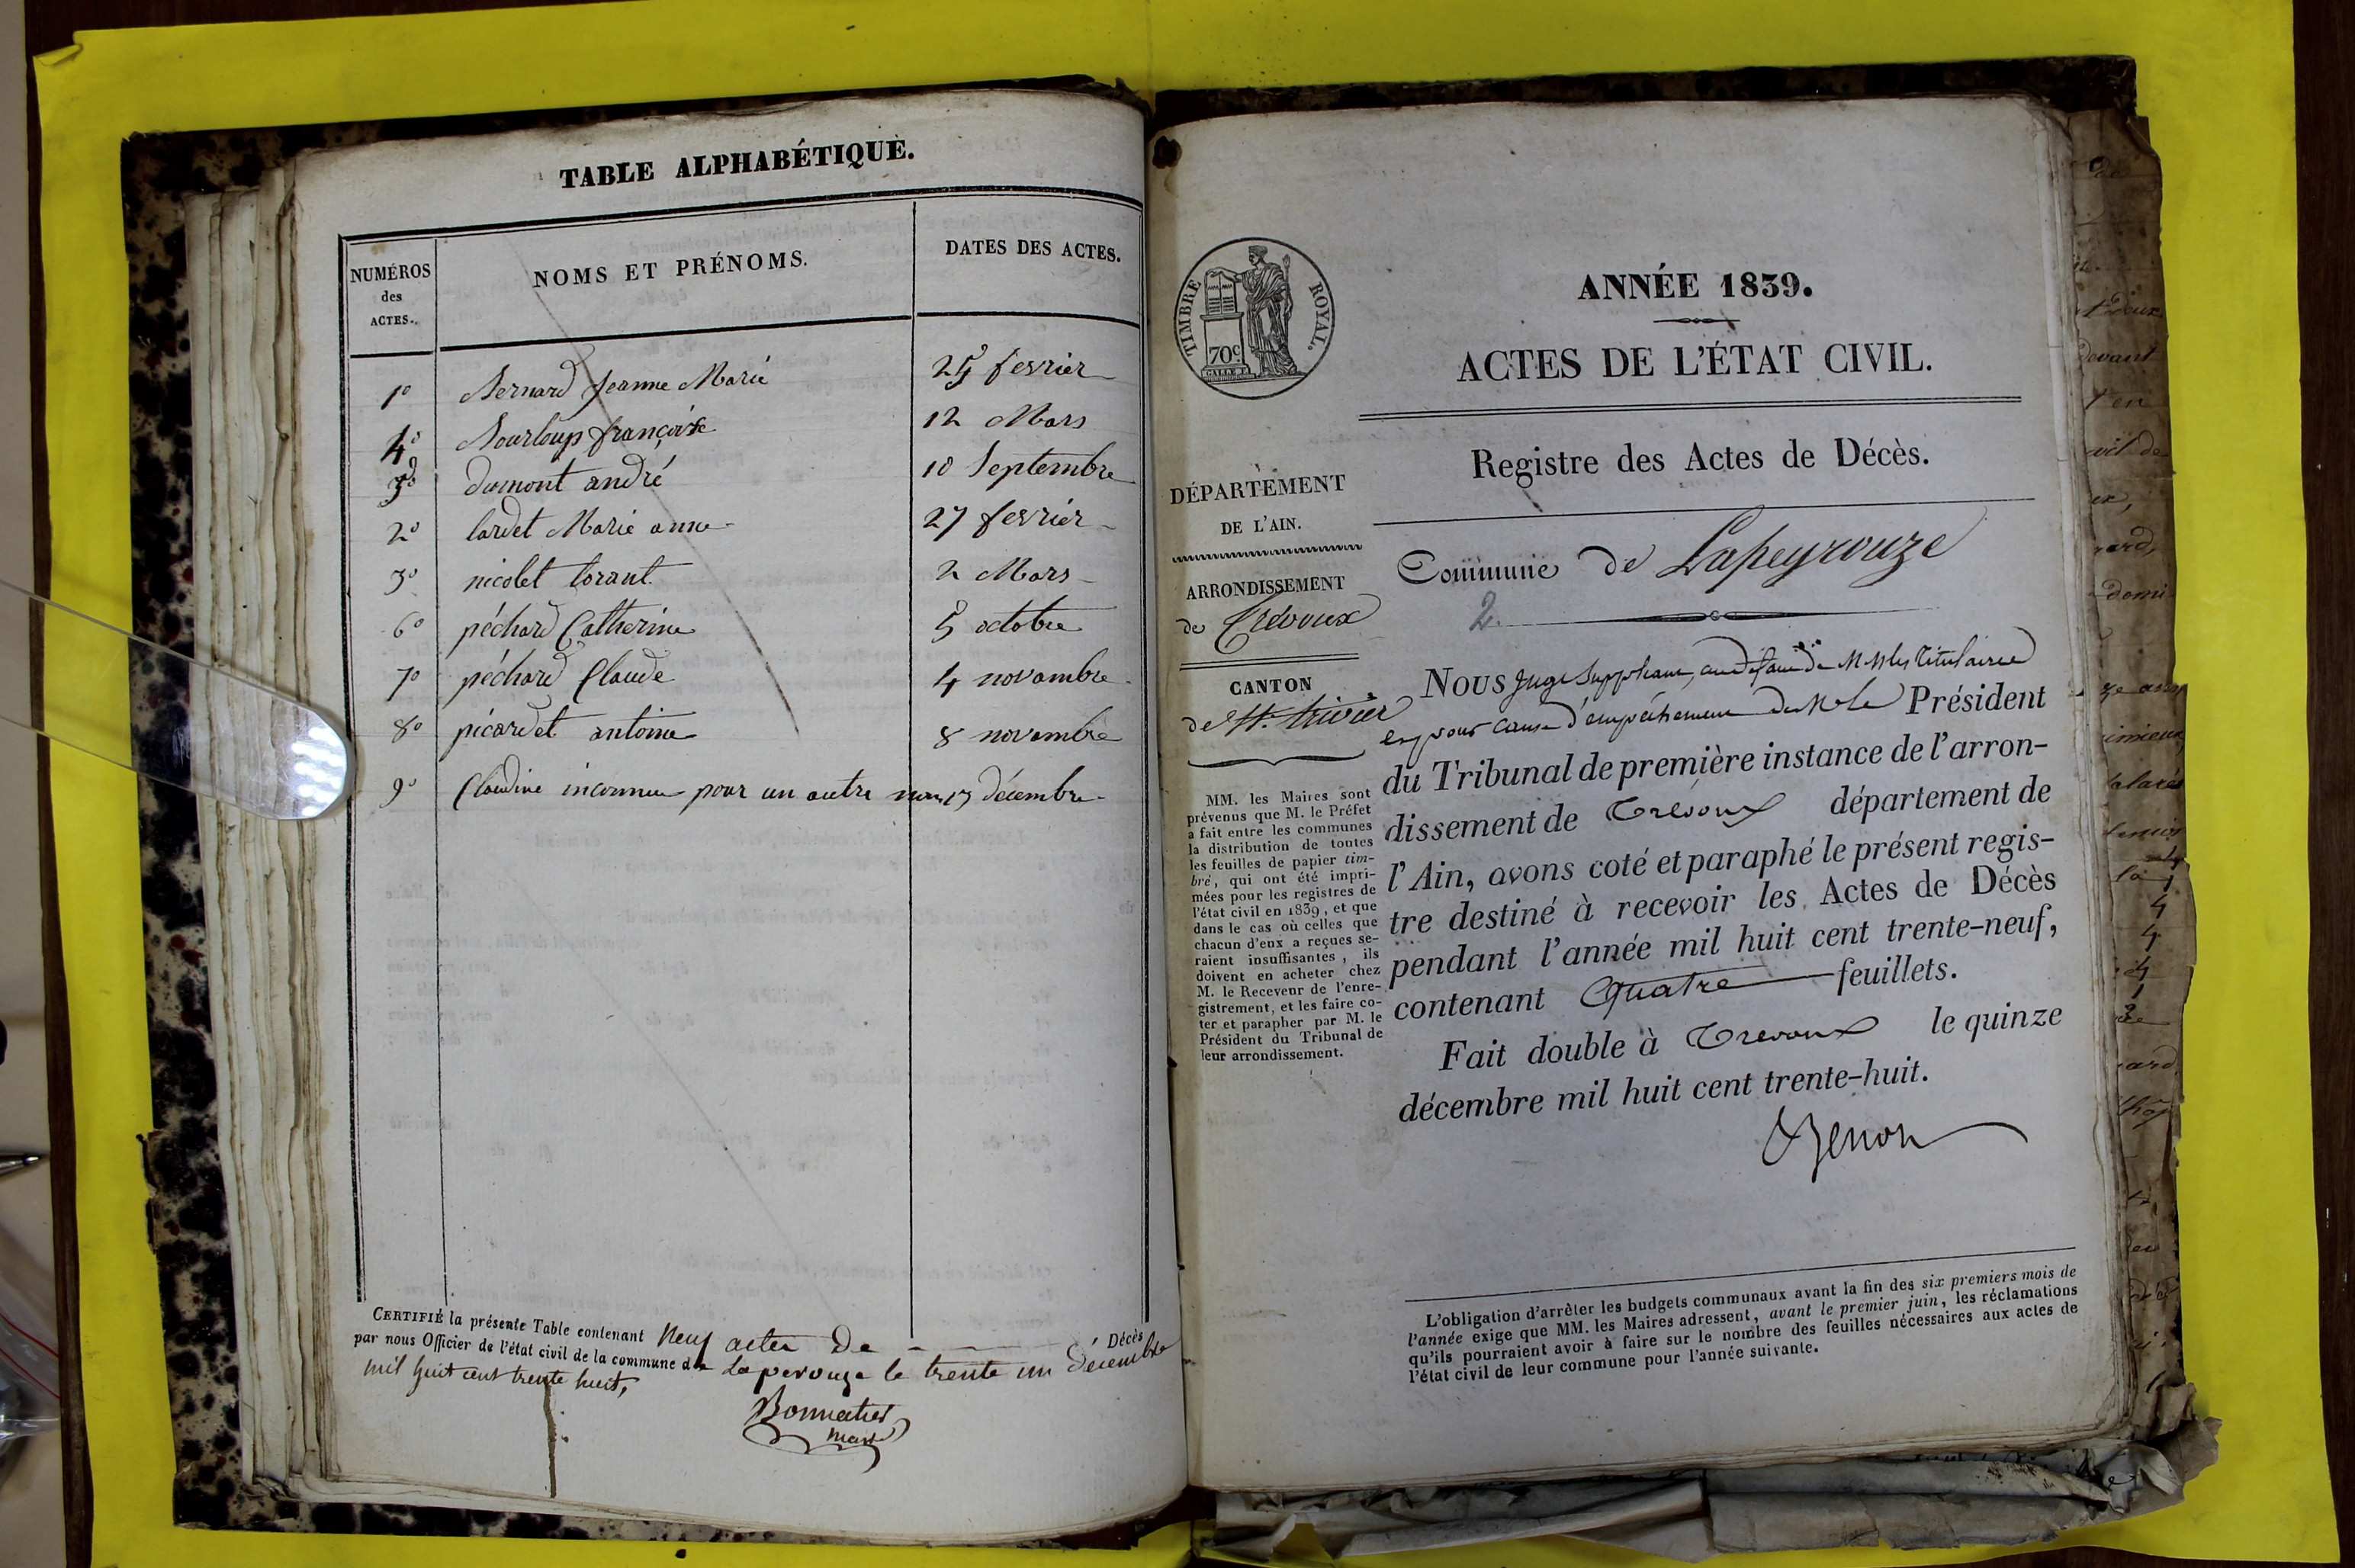 TABLE ALPHABÉTIQUE.
NUMÉROS des ACTES. NOMS ET PRÉNOMS. DATES DES ACTES.
1º Bernard Jeanne Marie 25 fevrier
4º Bourloup françoise 12 Mars
5º dumont andré 10 Septembre
2º lardet Marie anne 27 fevrier
3º nicolet lorant 2 Mars
6º péchard Catherine 5 octobre
7º péchard Claude 4 novembre
8º picardet antoine 8 novembre
9º Claudine inconnue pour un autre nom 13 décembre
CERTIFIÉ la présente Table contenant Neuf actes de Décès
par nous Officier de l'état civil de la commune de Laperouze le trente un décembre
mil huit cent trente huit,
Bonnatier
maire
TIMBRE ROYAL.
70 c.
ANNÉE 1839.
ACTES DE L'ÉTAT CIVIL.
Registre des Actes de Décès.
DÉPARTEMENT
DE L'AIN.
ARRONDISSEMENT
de Trévoux
CANTON
de St. trivier
MM. les Maires sont
prévenus que M. le Préfet
a fait entre les communes
la distribution de toutes
les feuilles de papier tim-
bré, qui ont été impri-
mées pour les registres de
l'état civil en 1839, et que
dans le cas où celles que
chacun d'eux a reçues se-
raient insuffisantes, ils
doivent en acheter chez
M. le Receveur de l'enre-
gistrement, et les faire co-
ter et parapher par M. le
Président du Tribunal de
leur arrondissement.
Commune de Lapeyrouze
2.
NOUS Juge Suppléant, au défaut de MM les titulaires
et pour cause d'empêchement de M le Président
du Tribunal de première instance de l'arron-
dissement de Trevoux département de
l'Ain, avons coté et paraphé le présent regis-
tre destiné à recevoir les Actes de Décès
pendant l'année mil huit cent trente-neuf,
contenant Quatre feuillets.
Fait double à Trevoux le quinze
décembre mil huit cent trente-huit.
L'obligation d'arrêter les budgets communaux avant la fin des six premiers mois de
l'année exige que MM. les Maires adressent, avant le premier juin, les réclamations
qu'ils pourraient avoir à faire sur le nombre des feuilles nécessaires aux actes de
l'état civil de leur commune pour l'année suivante.